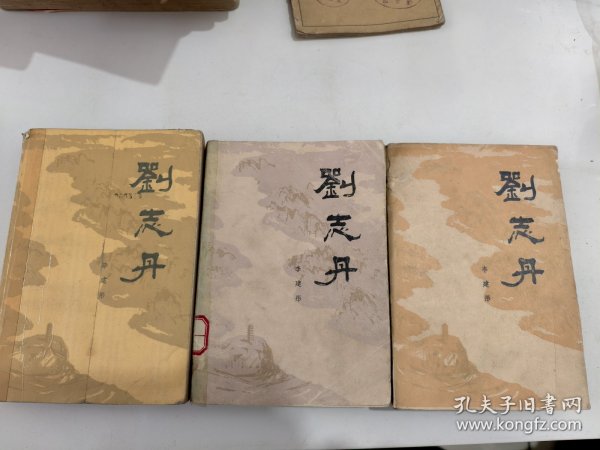 劉志丹
李建彤
劉志丹
李建彤
劉志丹
李建彤
孔夫子旧书网
www.kongfz.com